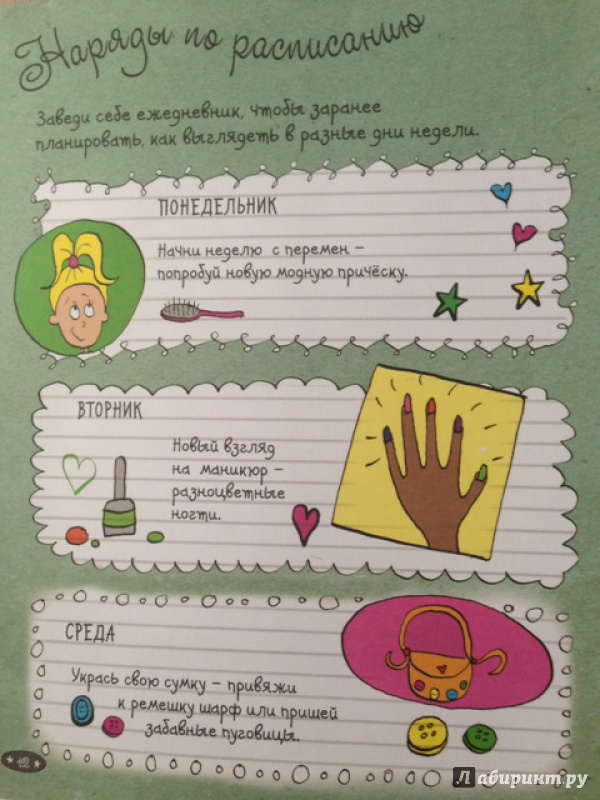 Наряды по расписанию
Заведи себе ежедневник, чтобы заранее
планировать, как выглядеть в разные дни недели.
ПОНЕДЕЛЬНИК
Начни неделю с перемен –
попробуй новую модную причёску.
ВТОРНИК
Новый взгляд
на маникюр –
разноцветные
ногти.
СРЕДА
Укрась свою сумку – привяжи
к ремешку шарф или пришей
забавные пуговицы.
42
Лабиринт.ру